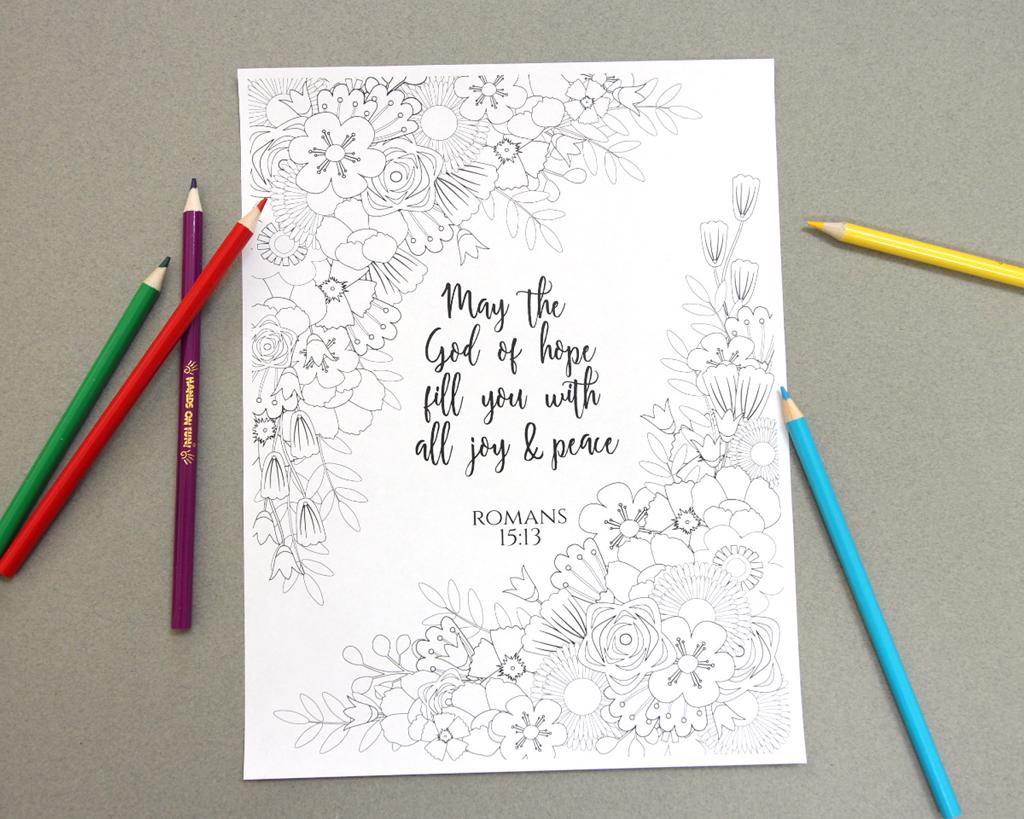 May the
God of hope
fill you with
all joy & peace
ROMANS
15:13
HANDS ON FUN!